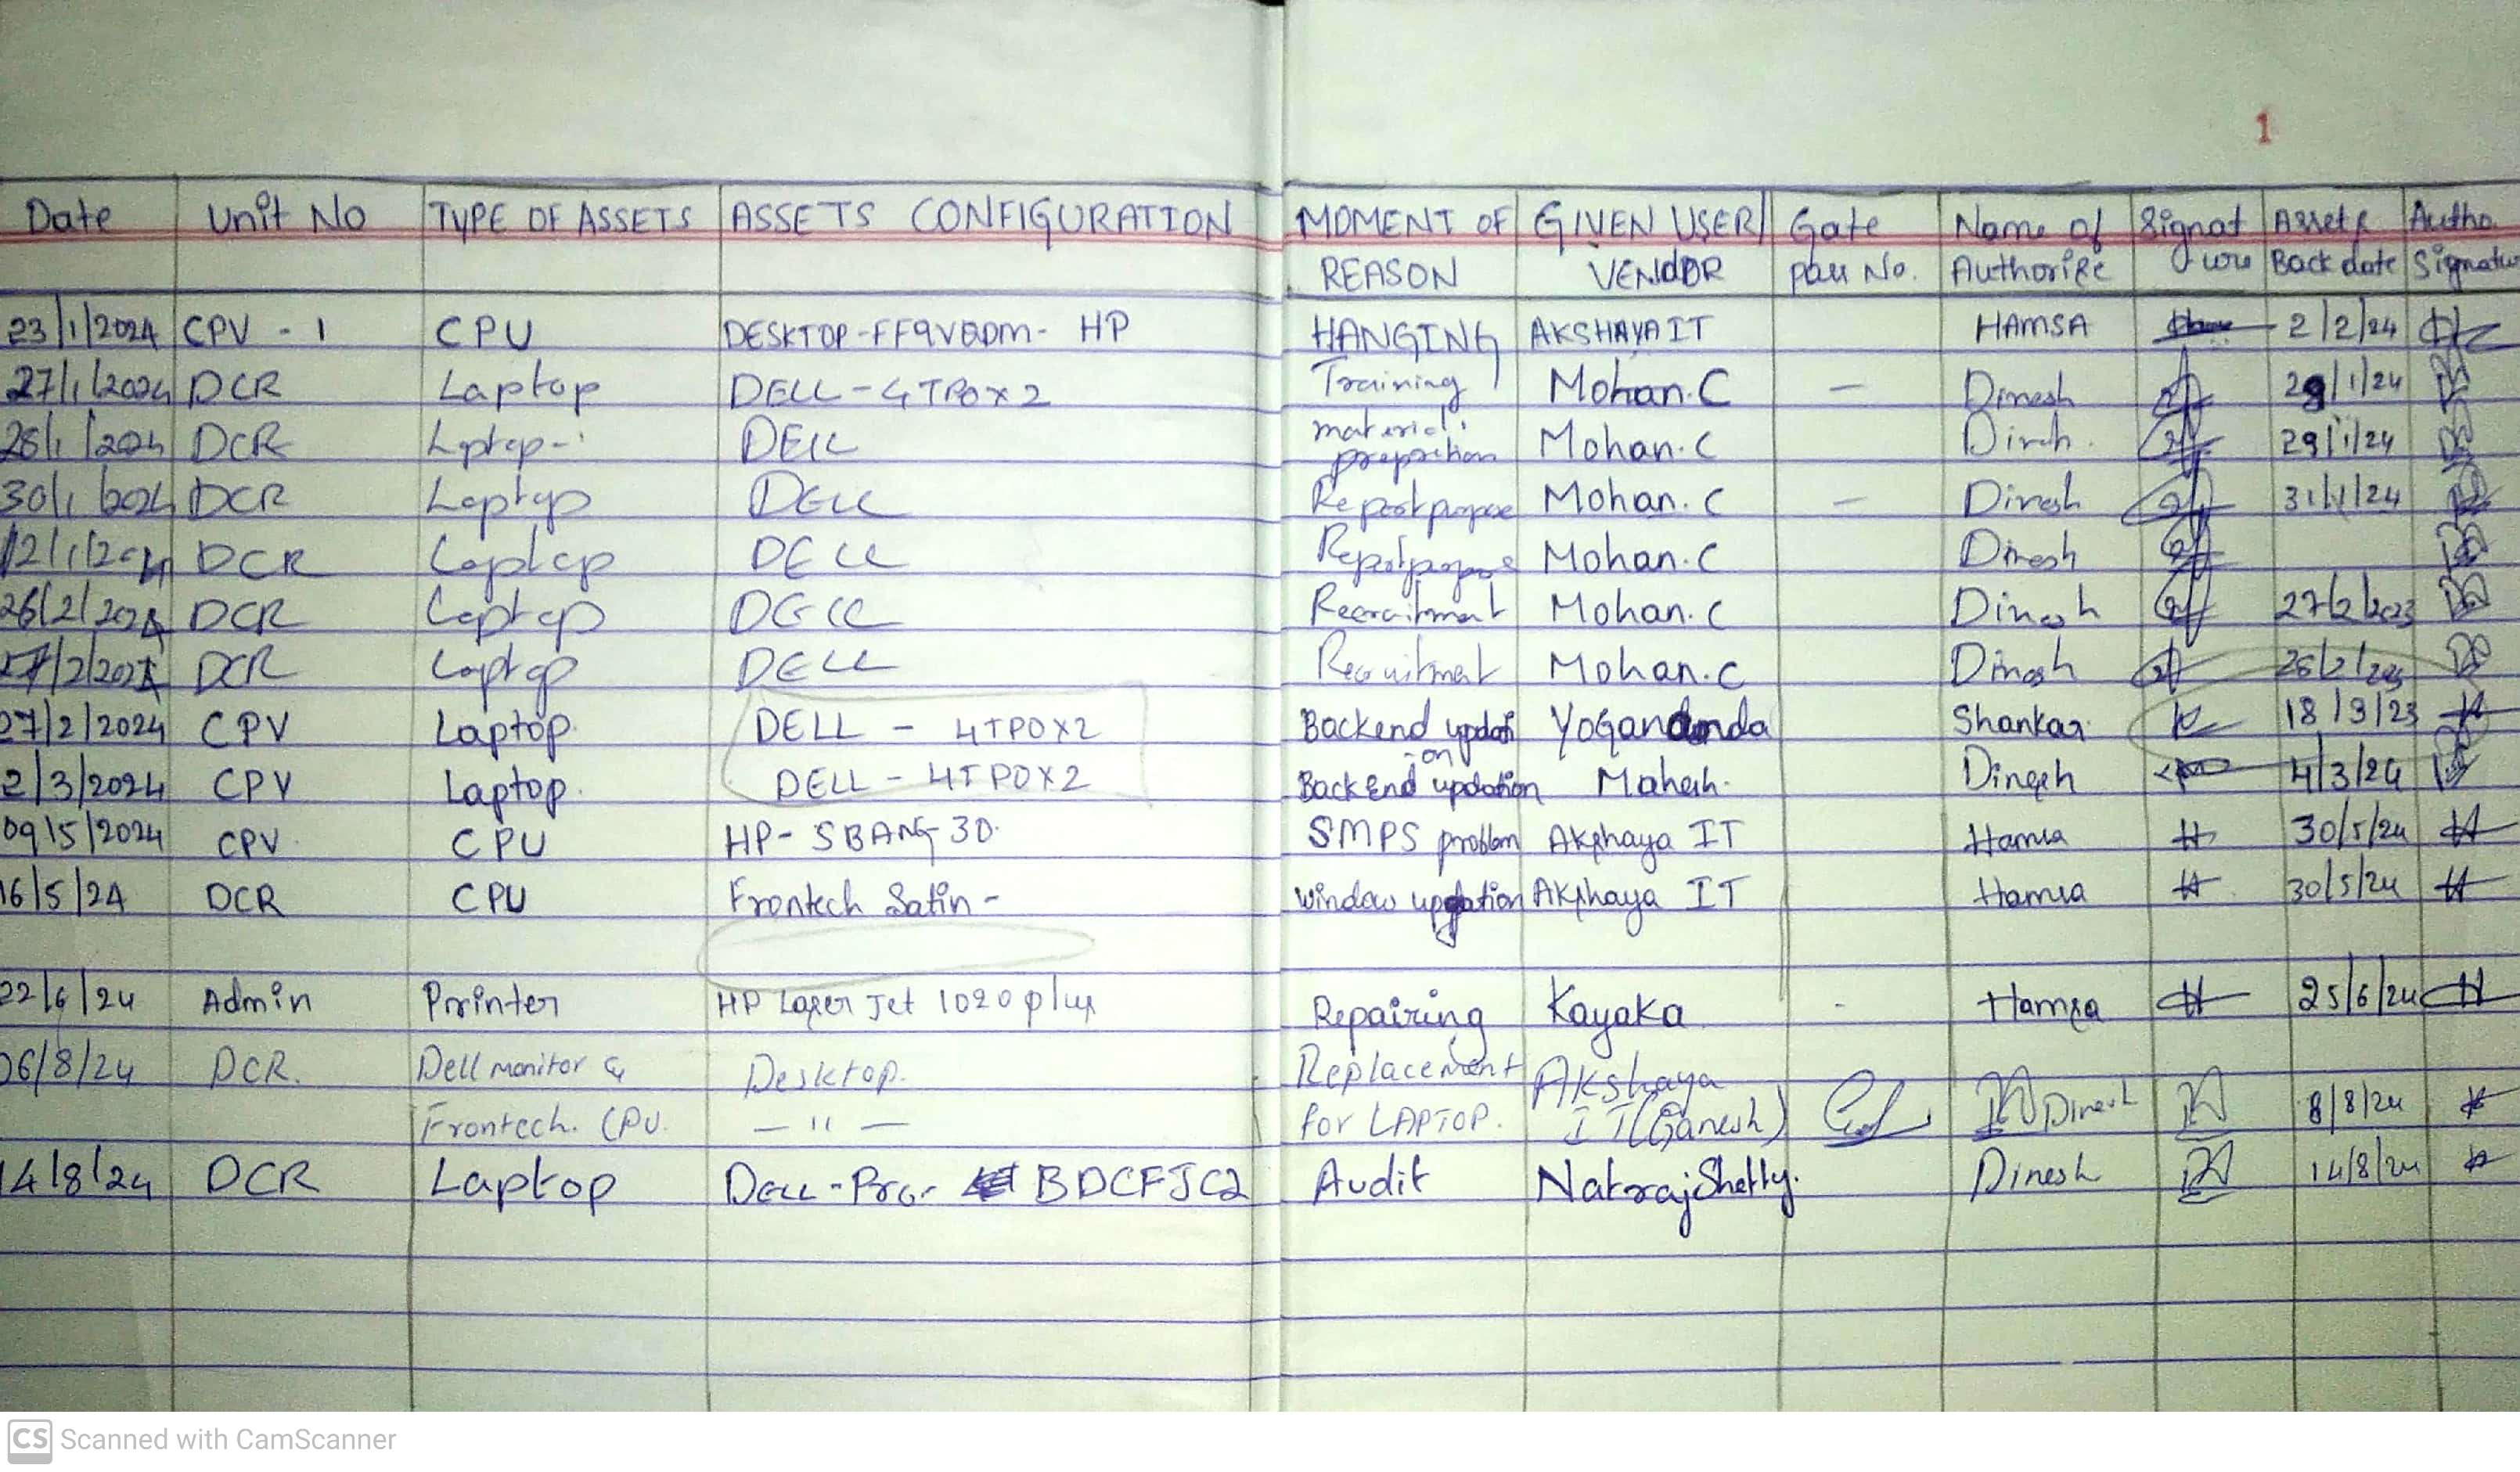 1
Date Unit No TYPE OF ASSETS ASSETS CONFIGURATION MOMENT OF GIVEN USER/ Gate Name of Signat Assets Autho
REASON VENdOR pass No. Authorise ure Back date Signatu
23/1/2024 CPV - 1 CPU DESKTOP-FF9VBDM- HP HANGING AKSHAYA IT HAMSA 2/2/24
27/1/2024 DCR Laptop DELL-4TP0x2 Training Mohan.C — Dinesh 29/1/24
28/1/2024 DCR Laptop DELL material Mohan.C 29/1/24
30/1/2024 DCR Laptop DELL Mohan.C — Dinesh 31/1/24
DCR Laptop DELL Mohan.C Dinesh
26/2/2024 DCR Laptop DELL Recruitment Mohan.C Dinesh 27/2/2023
27/2/2024 DCR Laptop DELL Recruitment Mohan.C Dinesh
27/2/2024 CPV Laptop DELL - 4TP0X2 Backend updati Yogananda Shankar
-on
2/3/2024 CPV Laptop DELL - 4TP0X2 Back End updation Mahesh. Dinesh 4/3/24
09/5/2024 CPV CPU HP- SMPS problem Akshaya IT Hamsa 30/5/24
16/5/24 DCR CPU Frontech Satin - window Akshaya IT Hamsa 30/5/24
22/6/24 Admin Printer HP Laser Jet 1020 plus Repairing Kayaka - Hamsa 25/6/24
06/8/24 DCR. Dell monitor & Desktop. Replacement Akshaya
Frontech. CPU. — 11 — for LAPTOP. IT (Ganesh) Dinesh 8/8/24
14/8/24 DCR Laptop DELL-Pro- BDCFJC2 Audit Natraj Shetty. Dinesh 14/8/24
CS Scanned with CamScanner